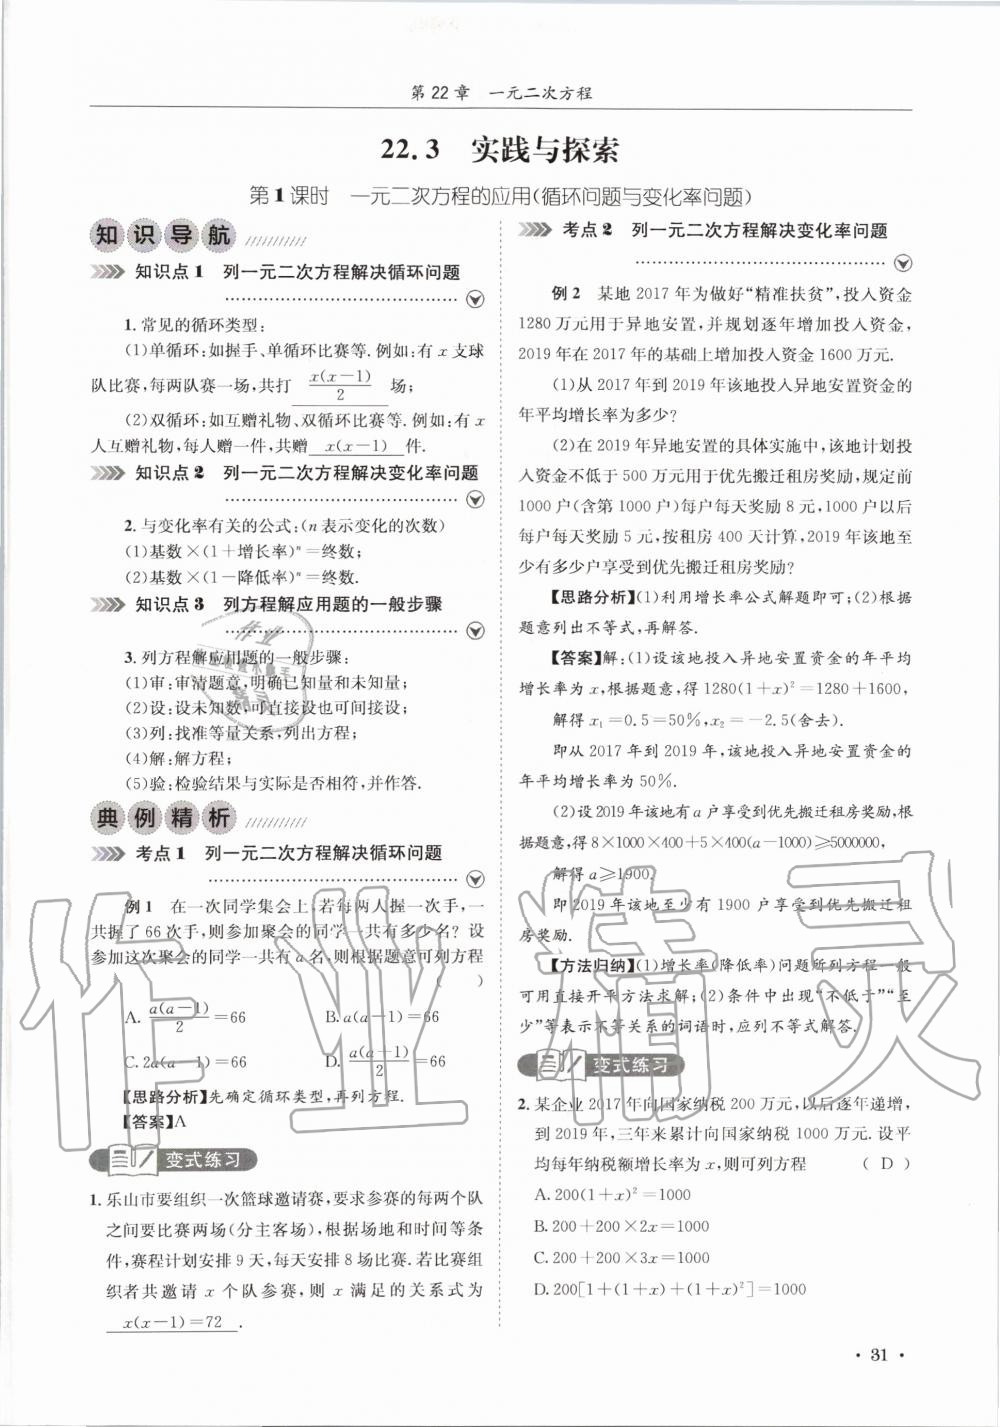 第22章 一元二次方程
22.3 实践与探索
第1课时 一元二次方程的应用(循环问题与变化率问题)
知识导航
知识点1 列一元二次方程解决循环问题
1.常见的循环类型:
(1)单循环:如握手、单循环比赛等.例如:有x支球
队比赛,每两队赛一场,共打 x(x-1)/2 场;
(2)双循环:如互赠礼物、双循环比赛等.例如:有x
人互赠礼物,每人赠一件,共赠 x(x-1) 件.
知识点2 列一元二次方程解决变化率问题
2.与变化率有关的公式:(n表示变化的次数)
(1)基数×(1+增长率)ⁿ=终数;
(2)基数×(1-降低率)ⁿ=终数.
知识点3 列方程解应用题的一般步骤
3.列方程解应用题的一般步骤:
(1)审:审清题意,明确已知量和未知量;
(2)设:设未知数,可直接设也可间接设;
(3)列:找准等量关系,列出方程;
(4)解:解方程;
(5)验:检验结果与实际是否相符,并作答.
典例精析
考点1 列一元二次方程解决循环问题
例1 在一次同学集会上,若每两人握一次手,一
共握了66次手,则参加聚会的同学一共有多少名?设
参加这次聚会的同学一共有a名,则根据题意可列方程
( )
A. a(a-1)/2=66 B.a(a-1)=66
C.2a(a-1)=66 D. a(a+1)/2=66
【思路分析】先确定循环类型,再列方程.
【答案】A
变式练习
1.乐山市要组织一次篮球邀请赛,要求参赛的每两个队
之间要比赛两场(分主客场),根据场地和时间等条
件,赛程计划安排9天,每天安排8场比赛.若比赛组
织者共邀请x个队参赛,则x满足的关系式为
x(x-1)=72 .
考点2 列一元二次方程解决变化率问题
例2 某地2017年为做好“精准扶贫”,投入资金
1280万元用于异地安置,并规划逐年增加投入资金,
2019年在2017年的基础上增加投入资金1600万元.
(1)从2017年到2019年该地投入异地安置资金的
年平均增长率为多少?
(2)在2019年异地安置的具体实施中,该地计划投
入资金不低于500万元用于优先搬迁租房奖励,规定前
1000户(含第1000户)每户每天奖励8元,1000户以后
每户每天奖励5元,按租房400天计算,2019年该地至
少有多少户享受到优先搬迁租房奖励?
【思路分析】(1)利用增长率公式解题即可;(2)根据
题意列出不等式,再解答.
【答案】解:(1)设该地投入异地安置资金的年平均
增长率为x,根据题意,得1280(1+x)²=1280+1600,
解得x₁=0.5=50%,x₂=-2.5(舍去).
即从2017年到2019年,该地投入异地安置资金的
年平均增长率为50%.
(2)设2019年该地有a户享受到优先搬迁租房奖励,根
据题意,得8×1000×400+5×400(a-1000)≥5000000,
解得a≥1900.
即2019年该地至少有1900户享受到优先搬迁租
房奖励.
【方法归纳】(1)增长率(降低率)问题所列方程一般
可用直接开平方法求解;(2)条件中出现“不低于”“至
少”等表示不等关系的词语时,应列不等式解答.
变式练习
2.某企业2017年向国家纳税200万元,以后逐年递增,
到2019年,三年来累计向国家纳税1000万元.设平
均每年纳税额增长率为x,则可列方程 ( D )
A.200(1+x)²=1000
B.200+200×2x=1000
C.200+200×3x=1000
D.200[1+(1+x)+(1+x)²]=1000
·31·
作业精灵